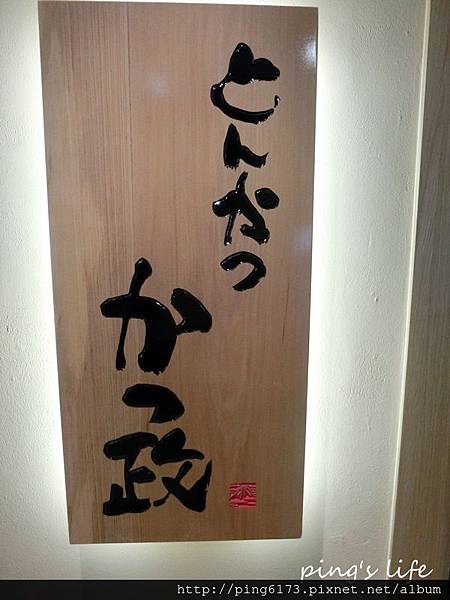 とんかつ
かつ政
ping's life
http://ping6173.pixnet.net/album